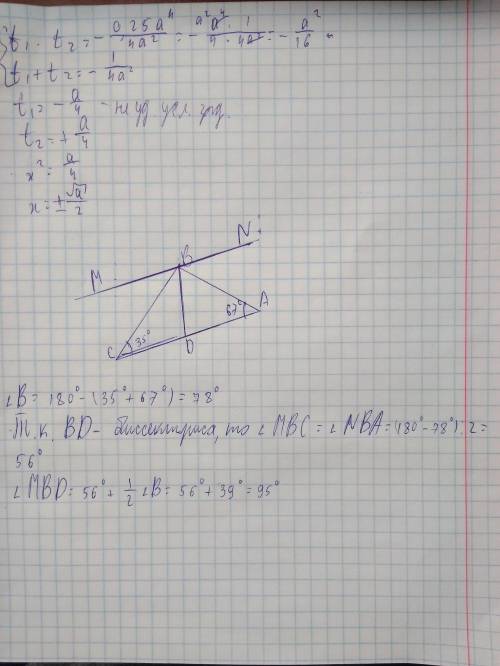 t₁ · t₂ = - 0.25a⁴ / 4a² = - a² a⁴ · 1 / 4 · 4a² = - a² / 16
t₁ + t₂ = - 1 / 4a²
t₁ = - a/4 - не уд. усл.
t₂ = + a/4
x² = a/4
x = ± √a / 2
M B N
C 35° D 67° A
∠B = 180° - (35° + 67°) = 78°
Т.к. BD - биссектриса, то ∠MBC = ∠NBA = (180° - 78°) : 2 =
56°
∠MBD = 56° + 1/2 ∠B = 56° + 39° = 95°